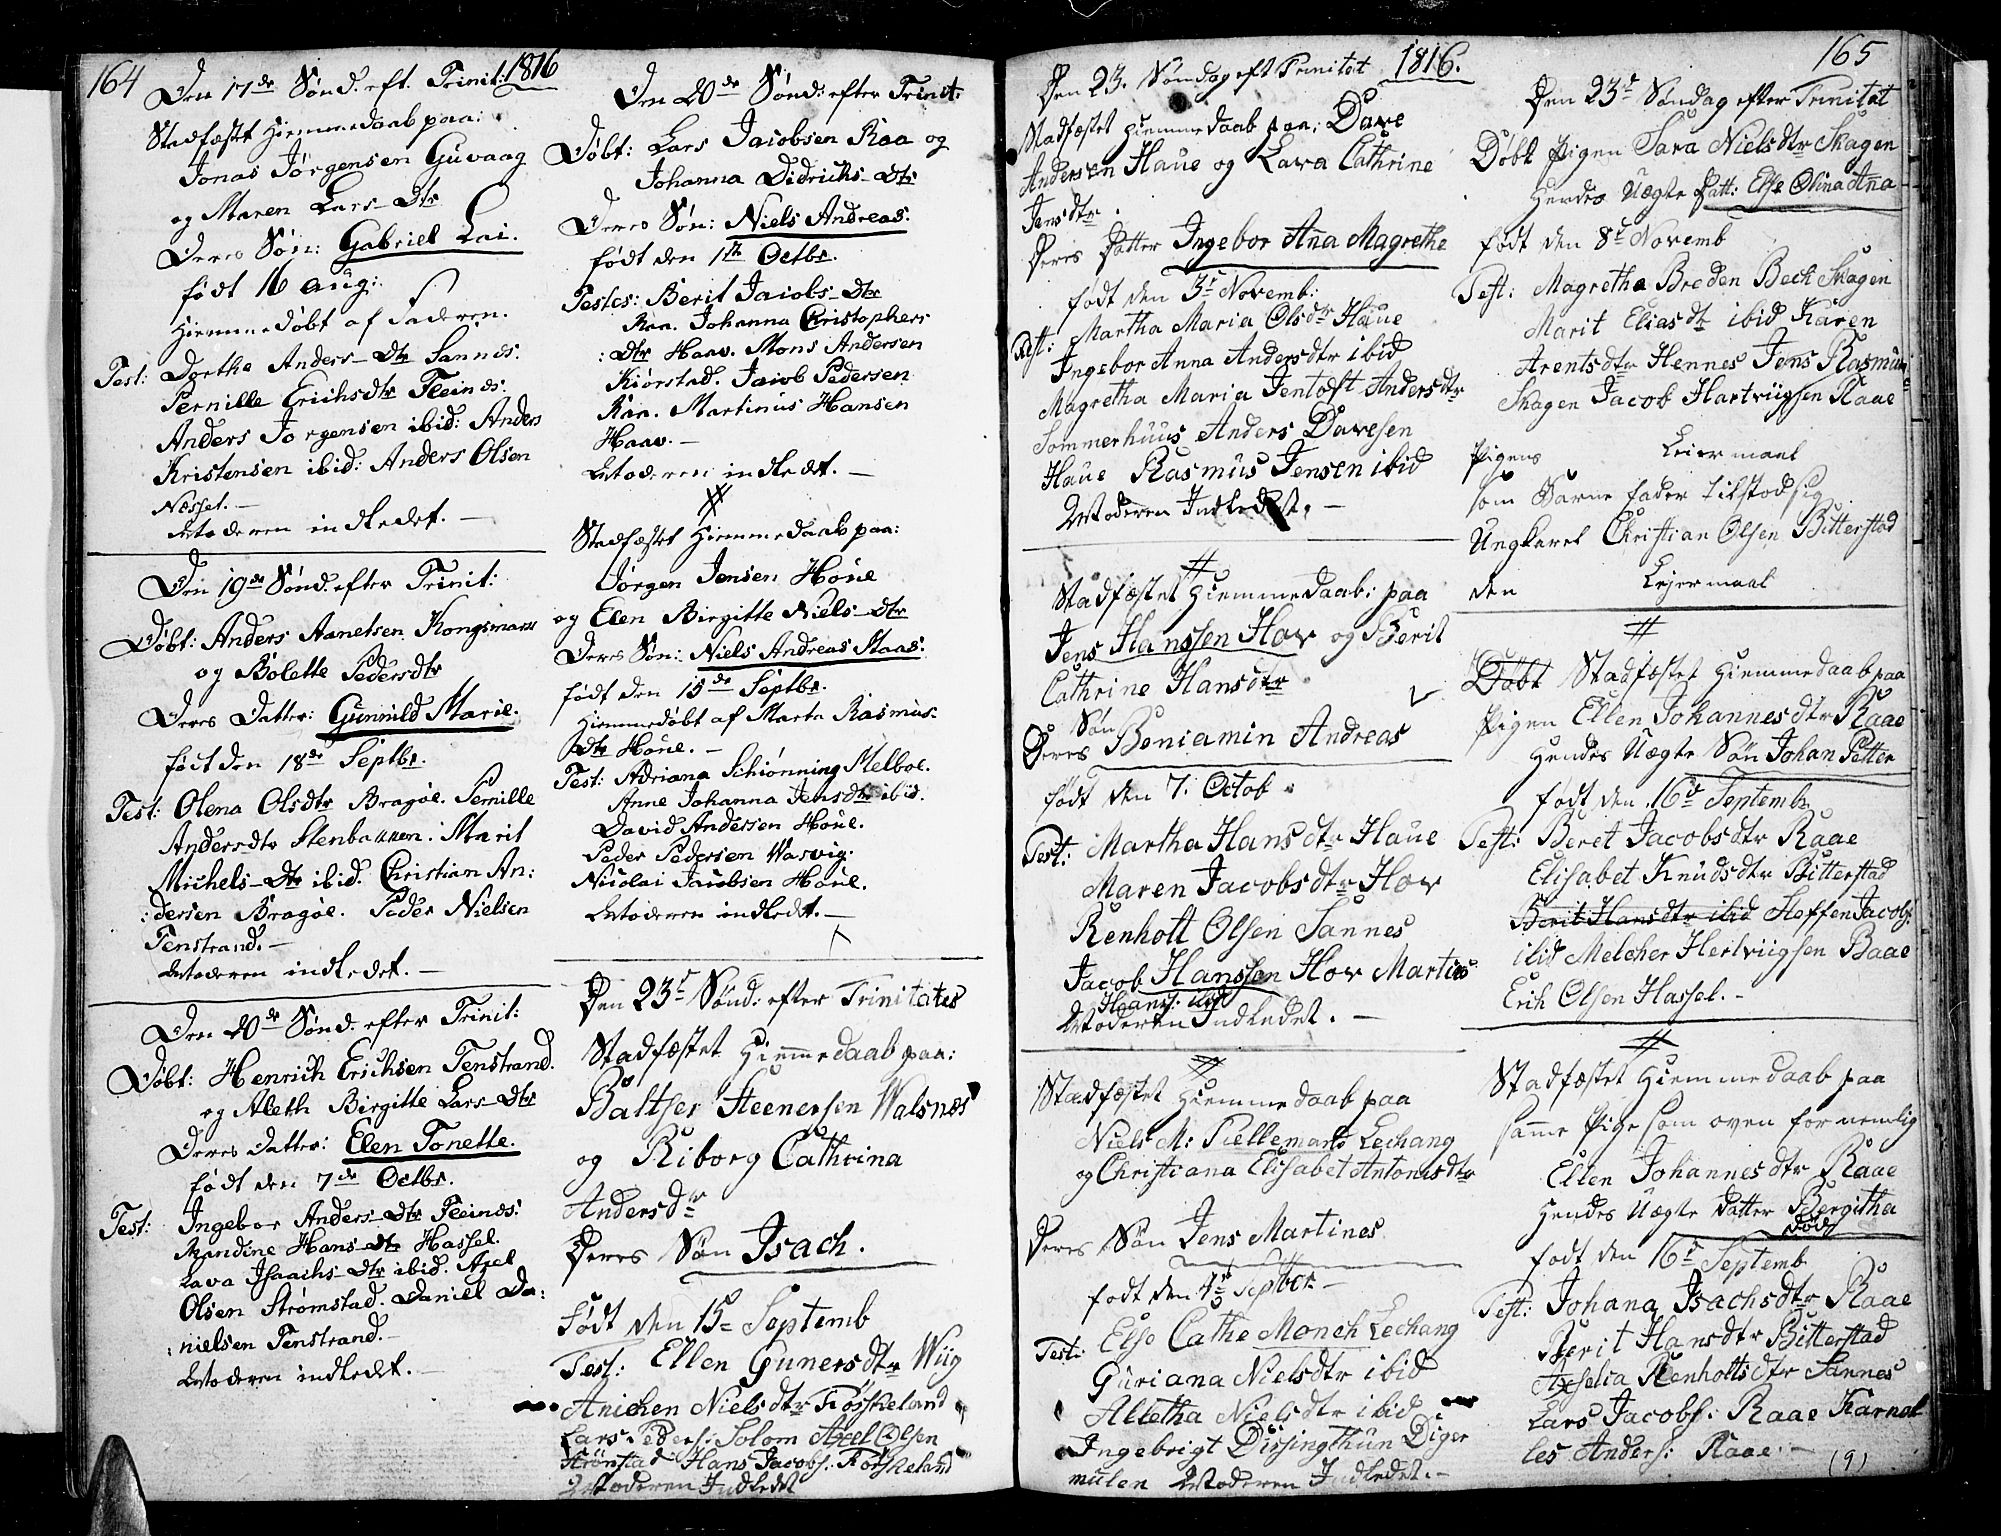 164
Den 17de Sønd. eft. Trinit: 1816
Stadfæstet Hiemmedaab paa:
Jonas Jørgensen Guvaag
og Maren Lars-Dtr
Deres Søn: Gabriel Lai.
født 16 Aug:
Hiemmedøbt af Faderen.
Test: Dorthe Anders-Dtr Sannes.
Pernille Erichsdtr Fleines.
Anders Jørgensen ibid: Anders
Kristensen ibid: Anders Olsen
Næsset.-
Moderen indledet. -
Den 19de Sønd. efter Trinit:
Døbt: Anders Aanetsen Kongsmark
og Bolette Pedersdtr
Deres Datter: Gunnild Marie.
født den 18de Septbr.
Test: Olena Olsdtr Bragøe. Pernille
Andersdtr Stenbakken. Marit
Michels-Dtr ibid. Christian An:
:dersen Bragøe. Peder Nielsen
Tenstrand.-
Moderen indledet. -
Den 20de Sønd. efter Trinit:
Døbt: Henrich Erichsen Tenstrand.
og Aleth Birgitte Lars-Dtr
Deres Datter: Elen Tonette.
født den 7de Octbr.
Test: Ingebor Anders-Dtr Fleines.
Randine Hans-Dtr Hassel.
Lava Isaachs-Dtr ibid. Axel
Olsen Strømstad. Daniel Da:
:nielsen Tenstrand.-
Moderen indledet. -
Den 20de Sønd: efter Trinit:
Døbt: Lars Jacobsen Raa og
Johanna Didrichs-Dtr
Deres Søn: Niels Andreas.
født den 1te Octbr.
Testes: Berit Jacobs-Dtr
Raa. Johanna Christophers
:Dtr Haav. Mons Andersen
Kiørstad. Jacob Pedersen
Raa. Martinus Hansen
Haav. -
Moderen indledet. -
Stadfæstet Hiemmedaab paa:
Jørgen Jensen Houe
og Elen Birgitte Niels-Dtr
Deres Søn: Niels Andreas Staas.
født den 15de Septbr.
Hiemmedøbt af Marta Rasmus-
Dtr Houe. -
Test: Adriana Schiønning Melboe.
Anne Johanna Jensdtr ibid.
David Andersen Houe.
Peder Pedersen Wasvig.
Nicolai Jacobsen Houe.
Moderen indledet. -
Den 23d Sønd: efter Trinitates
Stadfæstet Hiemmedaab paa:
Baltser Steenersen Walsnæs
og Riborg Cathrina
Andersdr
Deres Søn Isach.
Født den 15d Septemb
Test: Ellen Gunersdtr Wiig
Anichen Nielsdtr Føskeland
Lars Peders: Solom Axel Olsen
Strønstad Hans Jacobs. Føskeland
Moderen Indledet
Den 23. Søndag eft Trinitat 1816.
Stadfæstet Hiemmedaab paa: Dave
Andersen Haue og Lava Cathrine
Jensdtr
Deres Datter Ingebor Anna Magrethe
født den 3d Novemb:
Test: Martha Maria Olsdtr Haue
Ingebor Anna Andersdtr ibid
Magretha Maria Jentoft Andersdtr
Sommerhuus Anders Davesen
Haue Rasmus Jensen ibid
Moderen Indledet. -
Stadfæstet Hiemmedaab: paa
Jens Hanssen Hov og Berit
Cathrine Hansdtr
Deres Søn Beniamin Andreas
født den 7. Octob
Test: Martha Hansdtr Haue
Maren Jacobsdtr Hov
Renholt Olsen Sannes
Jacob Hanssen Hov Martin
Haans: ibid
Moderen Indledet. -
Stadfæstet Hiemmedaab paa
Niels M: Pellemans Lechang
og Christiana Elisabet Antonisdtr
Deres Søn Jens Martines
født den 4d Septbr -
Test: Else Cathe Monch Lechang
Guriana Nielsdtr ibid
Alletha Nielsdtr ibid
Ingebrigt Dissingthun Diger
mulen Moderen Indledet. -
165
Den 23d Søndag efter Trinitat
Døbt Pigen Sara Nielsdtr Skagen
Hendes Uægte Datt: Else Olina Anna
født den 8d Novemb
Test: Magretha Breden Bech Skagen
Marit Eliasdtr ibid Karen
Arentsdtr Hennes Jens Rasmus
Skagen Jacob Hartviigsen Raae
Pigens Leiermaal
som Barne fader tilstod sig
Ungkarl Christian Olsen Bitterstad
den Leiermaal
Døbt Stadfæstet Hiemmedaab paa
Pigen Ellen Johannesdtr Raae
Hendes Uægte Søn Johan Petter
født den 16d Septembr
Test: Beret Jacobsdtr Raae
Elisabet Knudsdtr Bitterstad
Berit Hansdtr ibid Steffen Jacobs:
ibid Melcher Hertviigsen Raae
Erik Olsen Hassel. -
Stadfæstet Hiemmedaab paa
samme Pige som oven for nemlig
Ellen Johannesdtr Raae
Hendes Uægte Datter Bergitha
død
født den 16d Septemb
Test: Johana Isachsdtr Raae
Berit Hansdtr Bitterstad
Axselia Renholtsdtr Sannes
Lars Jacobs: Raae Karnel
les Anders: Raae. -
(9)